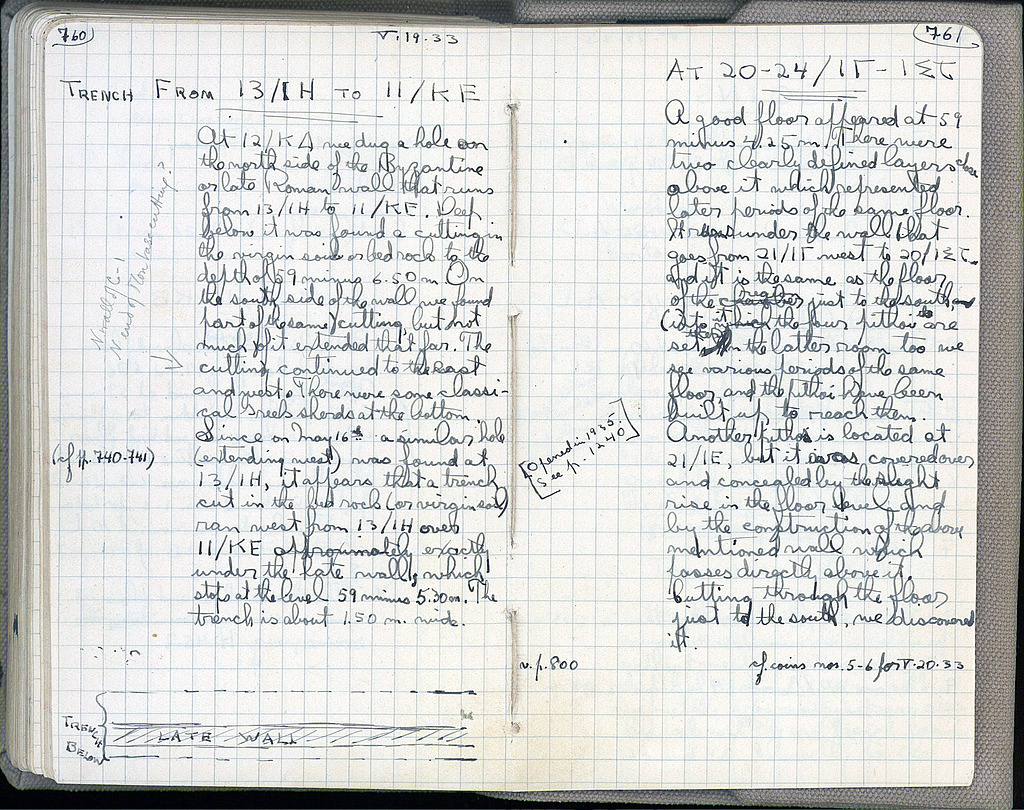 760
V.19.33
TRENCH FROM 13/ΙΗ TO 11/ΚΕ
At 12/ΚΔ we dug a hole on
the north side of the Byzantine
or late Roman wall that runs
from 13/ΙΗ to 11/ΚΕ. Deep
below it was found a cutting in
the virgin soil or bedrock to the
depth of 59 minus 6.50 m. On
the south side of the wall we found
part of the same cutting, but not
much of it extended that far. The
cutting continued to the east
and west. There were some classi-
cal Greek sherds at the bottom.
Since on May 16th a similar hole
(extending west) was found at
13/ΙΗ, it appears that a trench
cut in the bedrock (or virgin soil)
ran west from 13/ΙΗ over
11/ΚΕ approximately exactly
under the late wall, which
stops at the level 59 minus 5.30 m. The
trench is about 1.50 m. wide.
(cf pp. 740-741)
N wall of C-1
N end of
cutting?
TRENCH
BELOW
LATE WALL
761
AT 20-24/ΙΤ-ΙΣΤ
A good floor appeared at 59
minus 4.25 m. There were
two clearly defined layers close
above it which represented
later periods of the same floor.
It runs under the wall that
goes from 21/ΙΤ west to 20/ΙΣΤ
and it is the same as the floor
of the chamber just to the south, and
into which the four pithoi are
set. In the latter room too we
see various periods of the same
floor and the pithoi have been
built up to reach them.
Another pithos is located at
21/ΙΕ, but it was covered over
and concealed by the slight
rise in the floor level and
by the construction of the above
mentioned wall which
passes directly above it.
Cutting through the floor
just to the south, we discovered
it.
[Opened in 1935.
See p. 1240]
v. p. 800
cf. coins nos. 5-6 for V.20.33